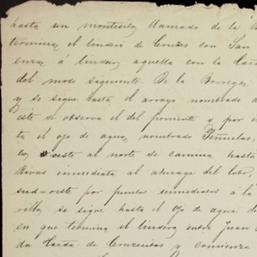 hasta un montecito, llamado de la
termina, el lindero de Cruces con San
enza, á lindar, aquella con la
del modo siguiente. De la Borrega,
y se sigue hasta el arroyo nombrado
este se observa el del poniente y por
ta el ojo de agua, nombrado Peñuelas,
al norte de camina, hasta
Rivas inmediata al
sud-oeste por puntos inmediatos á la
villa, se sigue hasta el Ojo de agua
en que termina el lindero, entre Juan
da de Crucesitas y comienza